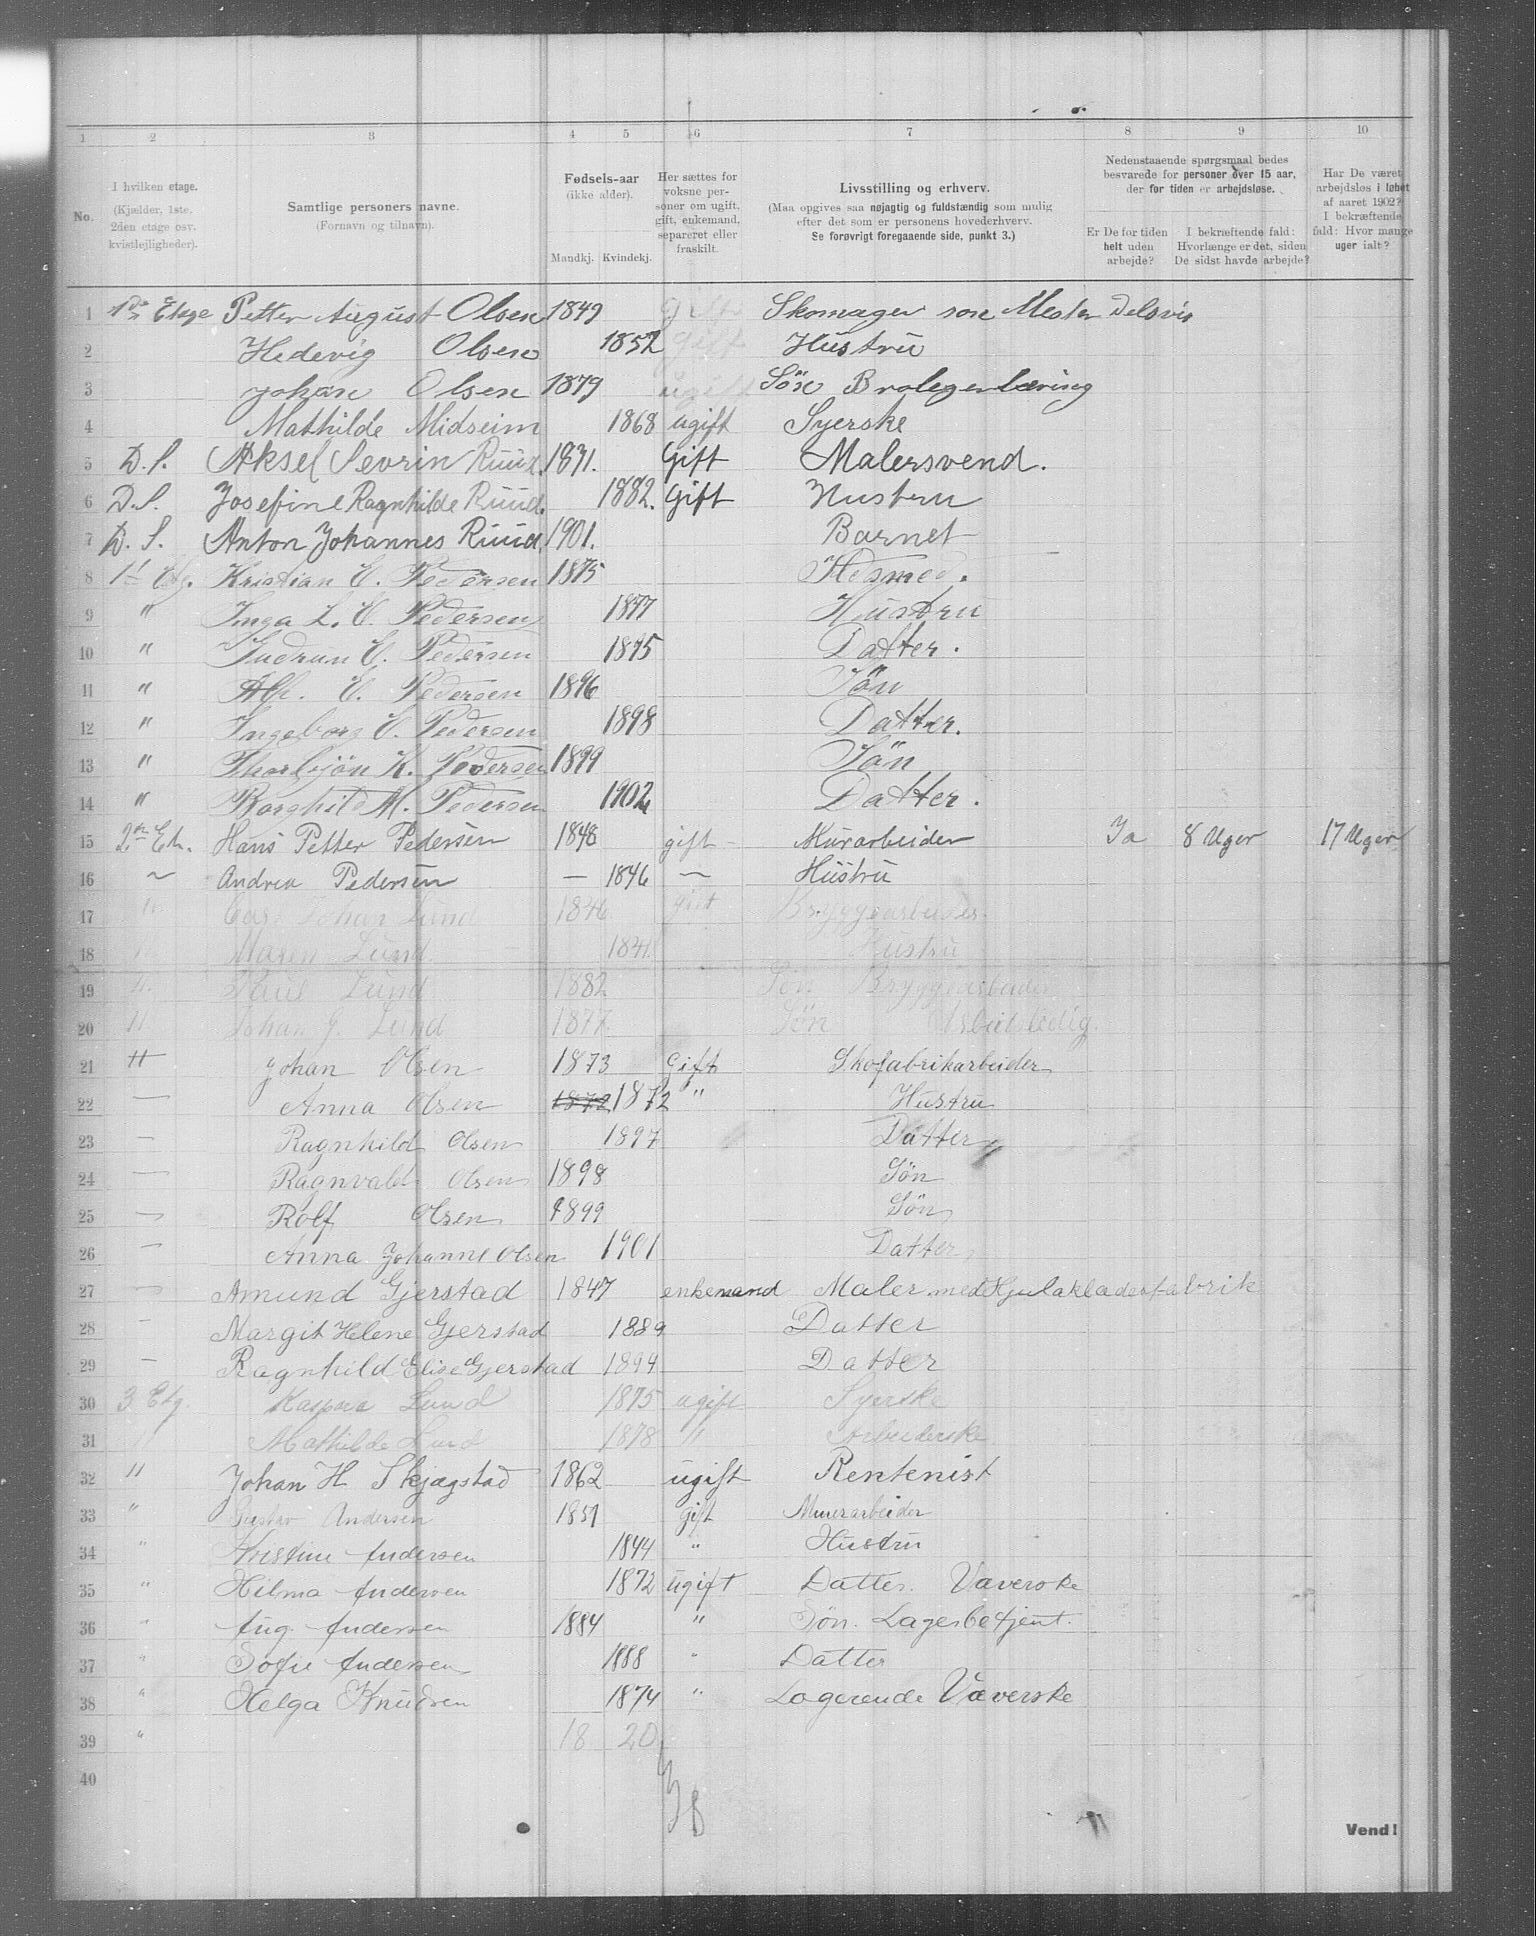 1 2 3 4 5 6 7 8 9 10
No.
I hvilken etage.
(Kjælder, 1ste. 2den etage osv. kvistlejligheder).
Samtlige personers navne.
(Fornavn og tilnavn).
Fødsels-aar
(ikke alder).
Mandkj. Kvindekj.
Her sættes for voksne personer om ugift, gift, enkemand, separeret eller fraskilt.
Livsstilling og erhverv.
(Maa opgives saa nøjagtig og fuldstændig som mulig efter det som er personens hovederhverv.
Se forøvrigt foregaaende side, punkt 3.)
Nedenstaaende spørgsmaal bedes besvarede for personer over 15 aar, der for tiden er arbejdsløse.
Er De for tiden helt uden arbejde?
I bekræftende fald: Hvorlænge er det, siden De sidst havde arbejde?
Har De været arbejdsløs i løbet af aaret 1902? I bekræftende fald: Hvor mange uger ialt?
1 Etage Petter August Olsen 1849 gift Skomager som Mester Delsvis
2 Hedevig Olsen 1852 gift Hustru
3 Johan Olsen 1879 ugift Sön
4 Mathilde Midseim 1868 ugift Syerske
5 D. S. Aksel Sevrin Ruud. 1871. Gift Malersvend.
6 D. S. Josefine Ragnhilde Ruud. 1882. Gift Hustru
7 D. S. Anton Johannes Ruud. 1901. Barnet
8 1 Etg. Kristian E. Pedersen 1875
9 " Inga L. E. Pedersen 1877 Hustru
10 " Gudrun E. Pedersen 1895 Datter.
11 " Alf. E. Pedersen 1896 Sön
12 " Ingeborg E. Pedersen 1898 Datter.
13 " Thorbjön K. Pedersen 1899 Sön
14 " Borghild M. Pedersen 1902 Datter.
15 2 Et. Hans Petter Pedersen 1848 gift Murarbeider Ja 8 Uger 17 Uger
16 ~ Andrea Pedersen — 1846 ~ Hustru
17 " Carl Johan Lund 1846 gift Bryggearbeider
18 " Maren Lund 1841 Hustru
19 " Paul Lund 1882 Sön Bryggearbeider
20 " Johan J. Lund 1877 Sön Arbeidsledig.
21 " Johan Olsen 1873 Gift Skofabrikarbeider
22 — Anna Olsen 1872 1872 " Hustru
23 — Ragnhild Olsen 1897 Datter
24 — Ragnvald Olsen 1898 Sön
25 — Rolf Olsen 1899 Sön
26 — Anna Johanne Olsen 1901 Datter
27 — Amund Gjerstad 1847 enkemand Maler med
28 — Margit Helene Gjerstad 1889 Datter
29 — Ragnhild Elise Gjerstad 1894 Datter
30 3 Etg. Kaspara Lund 1875 ugift Syerske
31 " Mathilde Lund 1878 " Arbeiderske
32 " Johan H. Skjægstad 1862 ugift Rentenist
33 " Gustav Andersen 1851 gift Murerarbeider
34 " Kristine Andersen 1844 " Hustru
35 " Hilma Andersen 1872 ugift Datter. Væverske
36 " Aug. Andersen 1884 " Sön. Lagerbetjent.
37 " Sofie Andersen 1888 " Datter
38 " Helga Knudsen 1874 " Logerende Væverske
39 " 18 20
40
38
Vend!